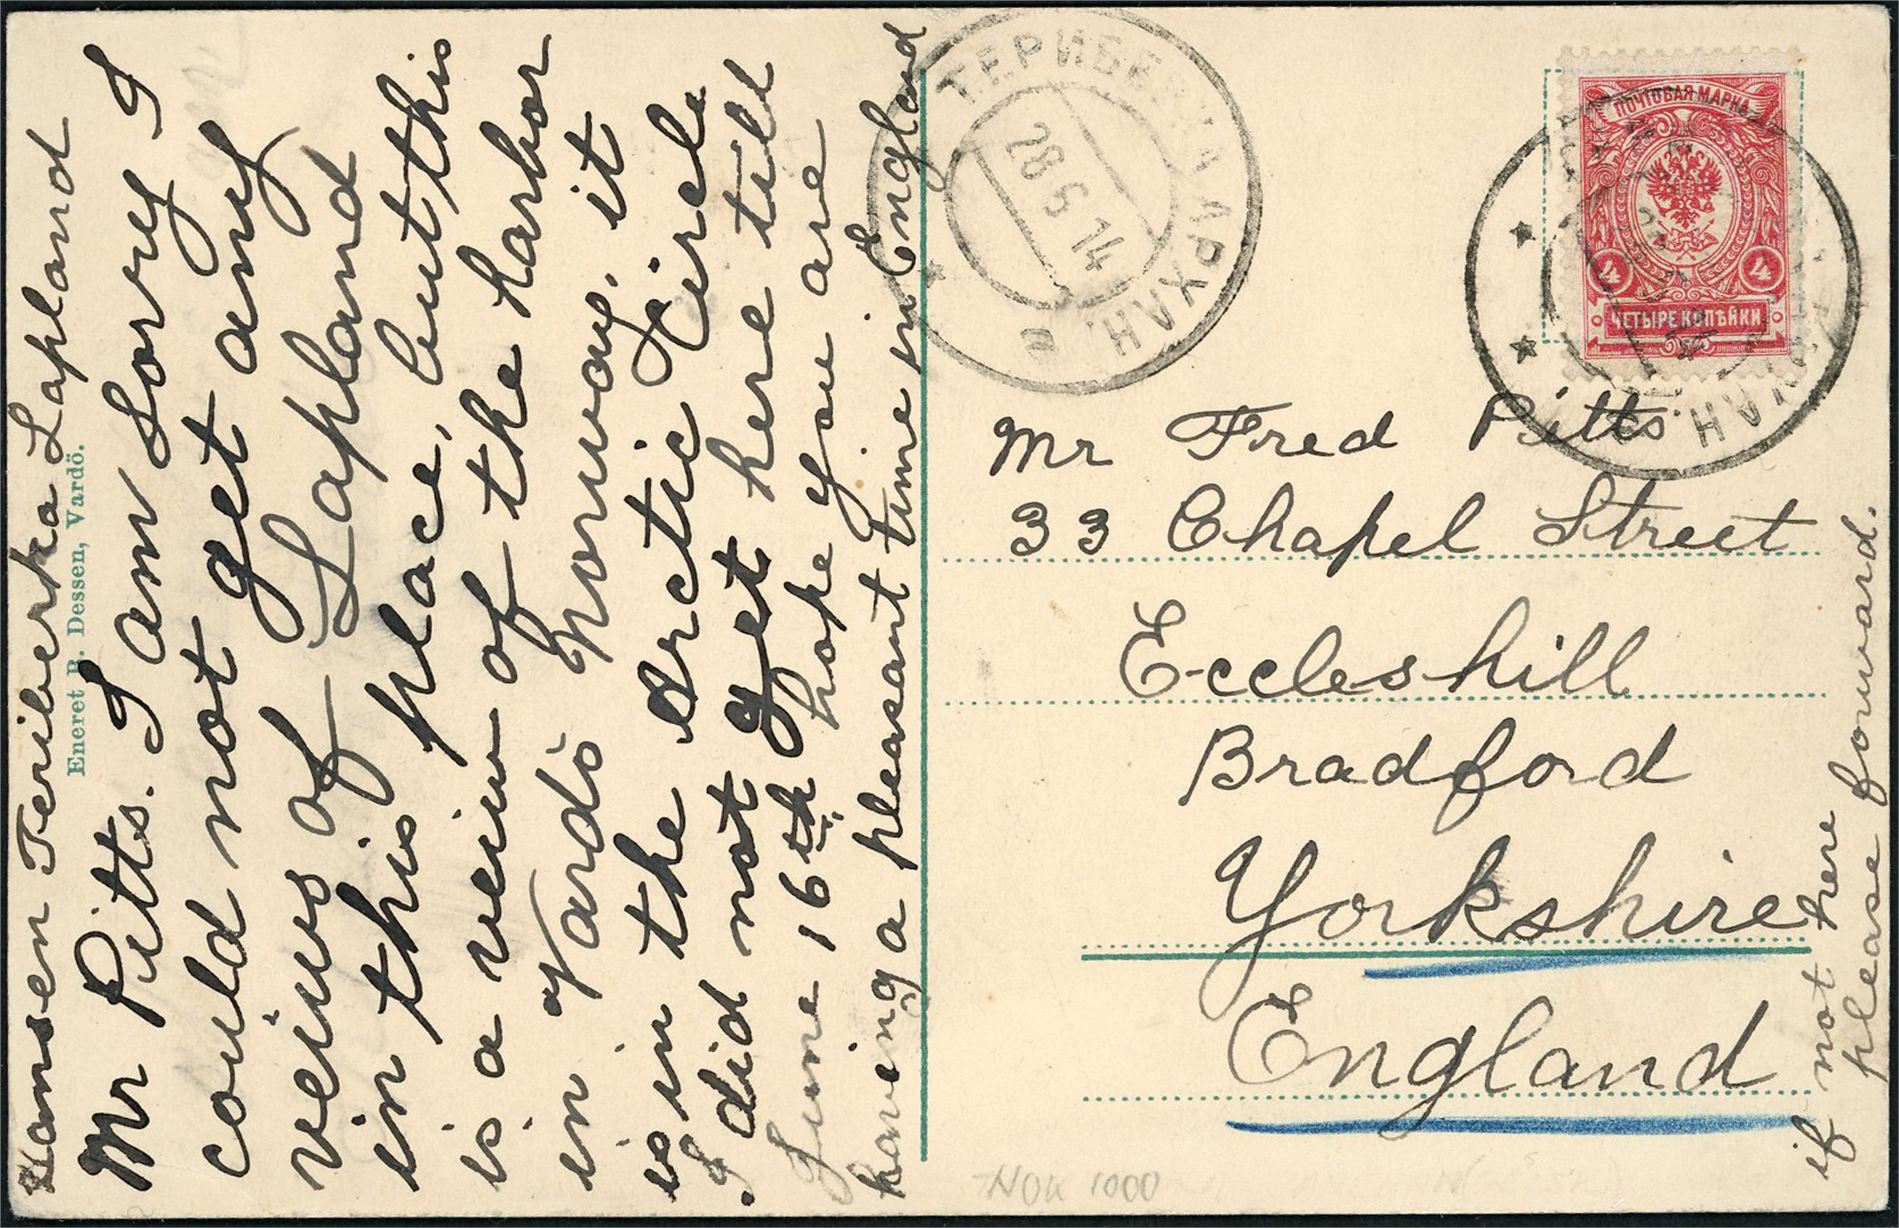 Hamsen Teriberka Lapland
Eneret B. Dessen, Vardö.
Mr Pitts. I am Sorry I
could not get any
veiws of Lapland
in this place, but this
is a veiw of the harbor
in Vardö Norway, it
is in the Arctic Circle
I did not get here till
June 16th hope you are
having a pleasant time in England
ТЕРИБЕРКА АРХАН.
28 6 14
ПОЧТОВАЯ МАРКА
4 4
ЧЕТЫРЕ КОПѢЙКИ
Mr Fred Pitts.
33 Chapel Street
Eccleshill
Bradford
Yorkshire
England
if not here
please forward.
NOK 1000